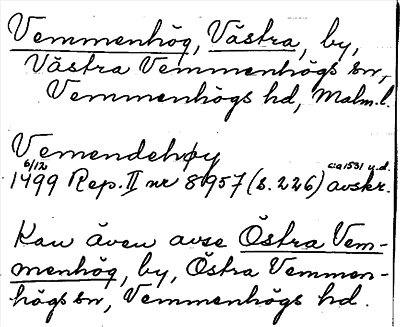 Vemmenhög, Västra, by,
Västra Vemmenhögs sn,
Vemmenhögs hd, Malm.l.
Vemendehøy
6/12 ca 1531 u.d.
1499 Rep. II nr 8957 (s. 226) avskr.
Kan även avse Östra Vem-
menhög, by, Östra Vemmen-
högs sn, Vemmenhögs hd.